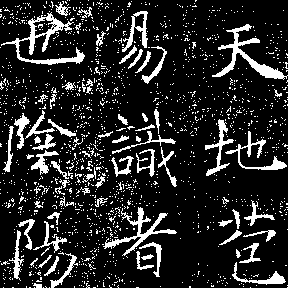 天地苞
易識者
也陰陽